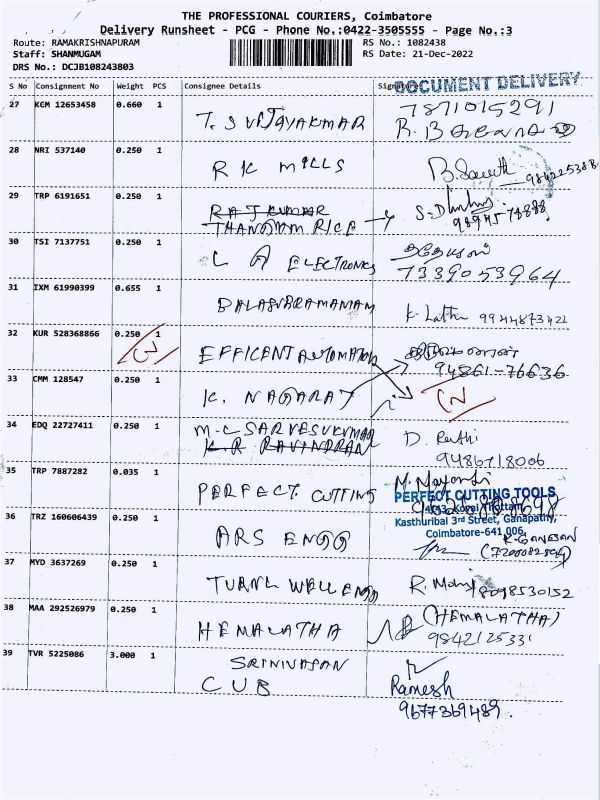 THE PROFESSIONAL COURIERS, Coimbatore
Delivery Runsheet - PCG - Phone No.:0422-3505555 - Page No.:3
Route: RAMAKRISHNAPURAM RS No.: 1082438
Staff: SHANMUGAM RS Date: 21-Dec-2022
DRS No.: DCJB108243803
DOCUMENT DELIVERY
S No Consignment No Weight PCS Consignee Details Signature
27 KCM 12653458 0.660 1 T. S VIJAYAKMAR 7871015291
R. B
28 NRI 537140 0.250 1 R K MILLS
29 TRP 6191651 0.250 1 RAJ KUMAR
THANGAM RICE
30 TSI 7137751 0.250 1 L A ELECTRONICS
7339053964
31 IXM 61990399 0.655 1 BALASUBRAMANIAM K. Latha 9944873422
32 KUR 528368866 0.250 1 EFFICENT AUTOMATION
94861-76636
33 CMM 128547 0.250 1 K. NAGARAJ
34 EDQ 22727411 0.250 1 M.C SARVESVKVMAR D. Rathi
K.R RAVINDRAN 9486718006
35 TRP 7887282 0.035 1 PERFECT CUTTING
PERFECT CUTTING TOOLS
Kovai Thottam
Kasthuribai 3rd Street, Ganapathy,
Coimbatore-641 006.
36 TRZ 160606439 0.250 1 ARS ENGG K-GANESAN
37 MYD 3637269 0.250 1 TURNL WELL ENGG R. Mohan 8098530152
38 MAA 292526979 0.250 1 HEMALATHA (HEMALATHA)
9842125331
39 TVR 5225086 3.000 1 SRINIVASAN
CUB Ramesh
9677369489.